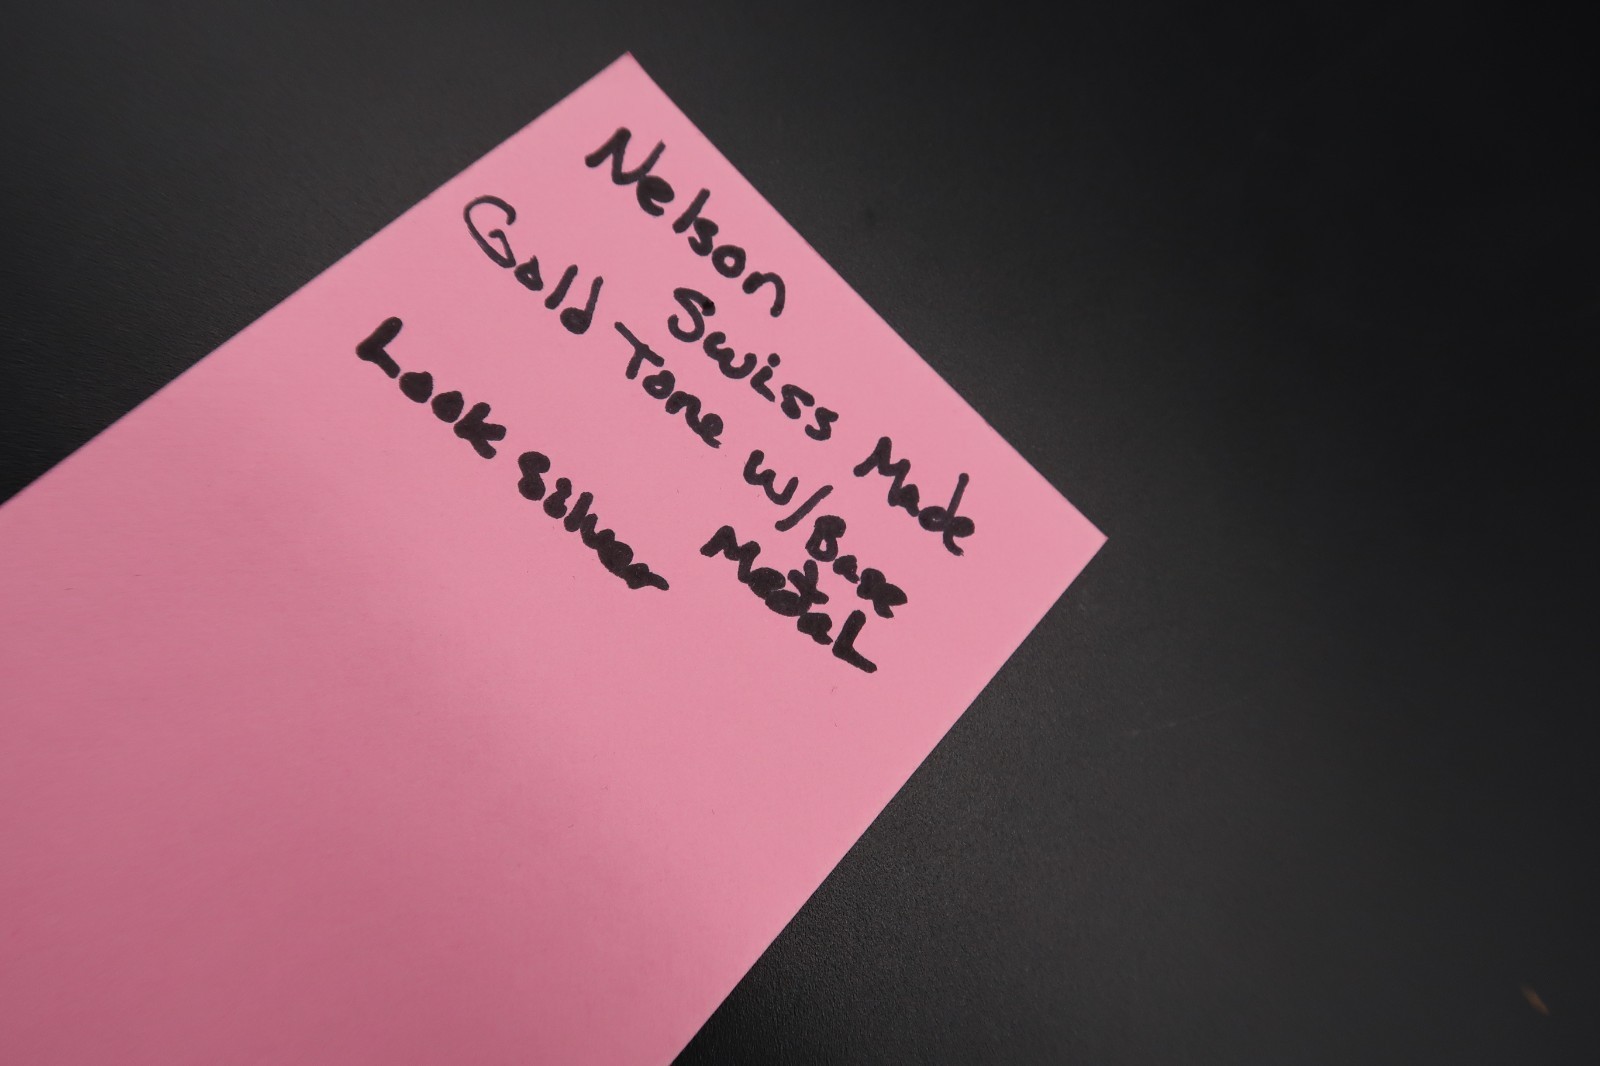 Nelson
Swiss Made
Gold Tone w/Base
Metal
Look Silver